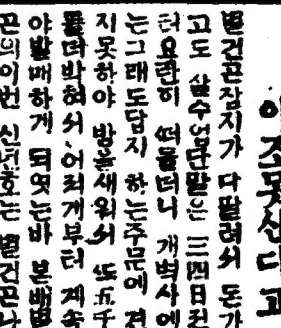 조못산다고
別건곤잡지가 다팔려서 돈가
고도 살수업단말은 三四日전
터요란히 떠들더니 개벽사에
는그래도답지 하는주문에 견
지못하야 밤을새워서 또五千
를더박혀서 어리게부터 계속
야발매하게 되엿는바 본배別
곤의이번 신년호는 別건곤나